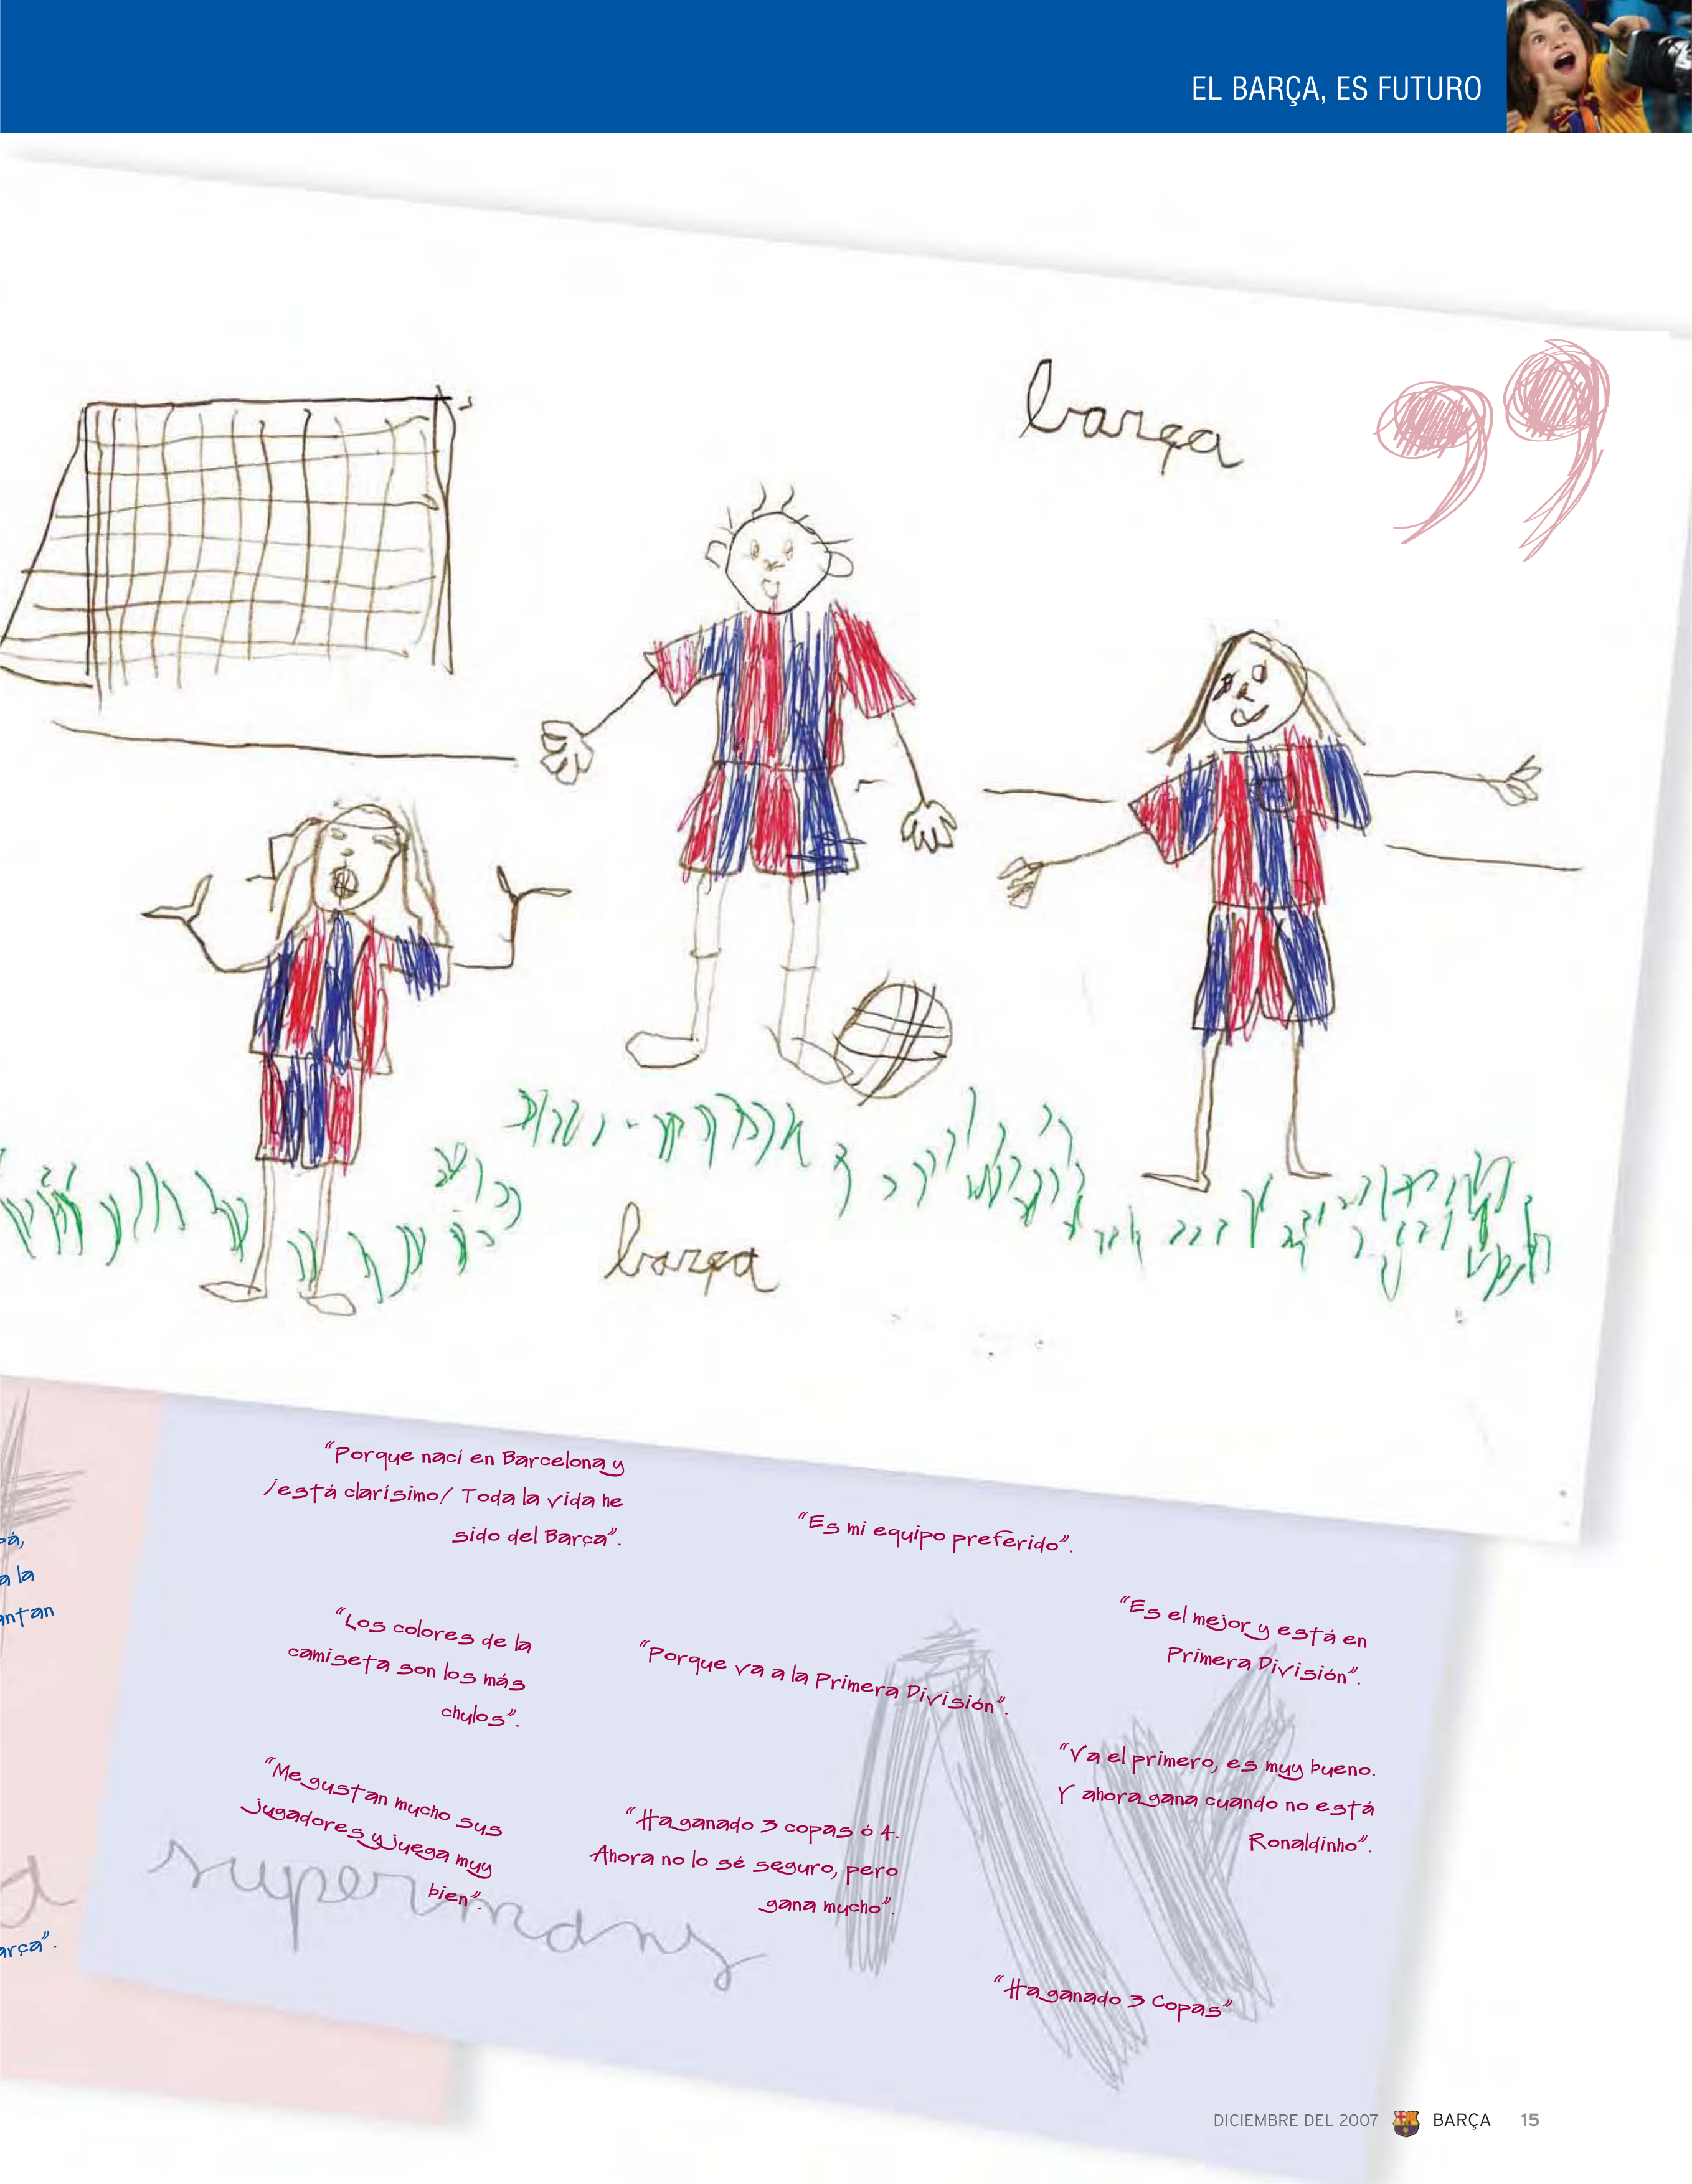 EL BARÇA, ES FUTURO
barça
barça
“Porque nací en Barcelona y
¡está clarísimo! Toda la vida he
sido del Barça”.
“Es mi equipo preferido”.
“Es el mejor y está en
Primera División”.
“Los colores de la
camiseta son los más
chulos”.
“Porque va a la Primera División”.
“Va el primero, es muy bueno.
Y ahora gana cuando no está
Ronaldinho”.
“Me gustan mucho sus
jugadores y juega muy
bien”.
“Ha ganado 3 copas ó 4.
Ahora no lo sé seguro, pero
gana mucho”.
“Ha ganado 3 Copas”
a la
arça”.
DICIEMBRE DEL 2007 BARÇA | 15